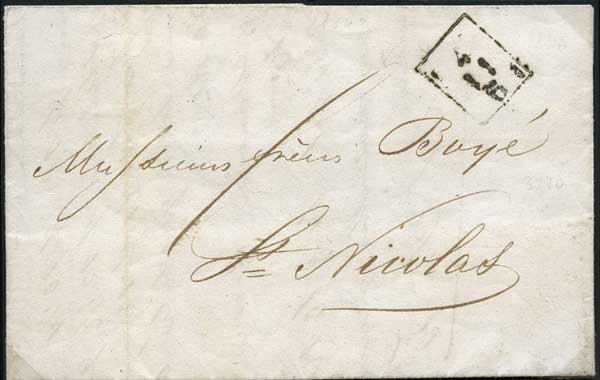 Messieurs frères Boyé
St Nicolas